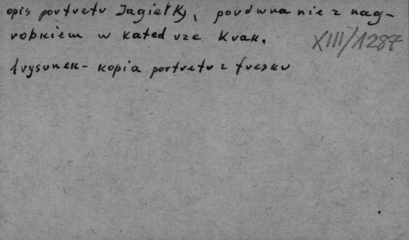 opis portretu Jagiełły, porównanie z nag-
robkiem w katedrze krak.
XIII/1287
1 rysunek - kopia portretu z fresku